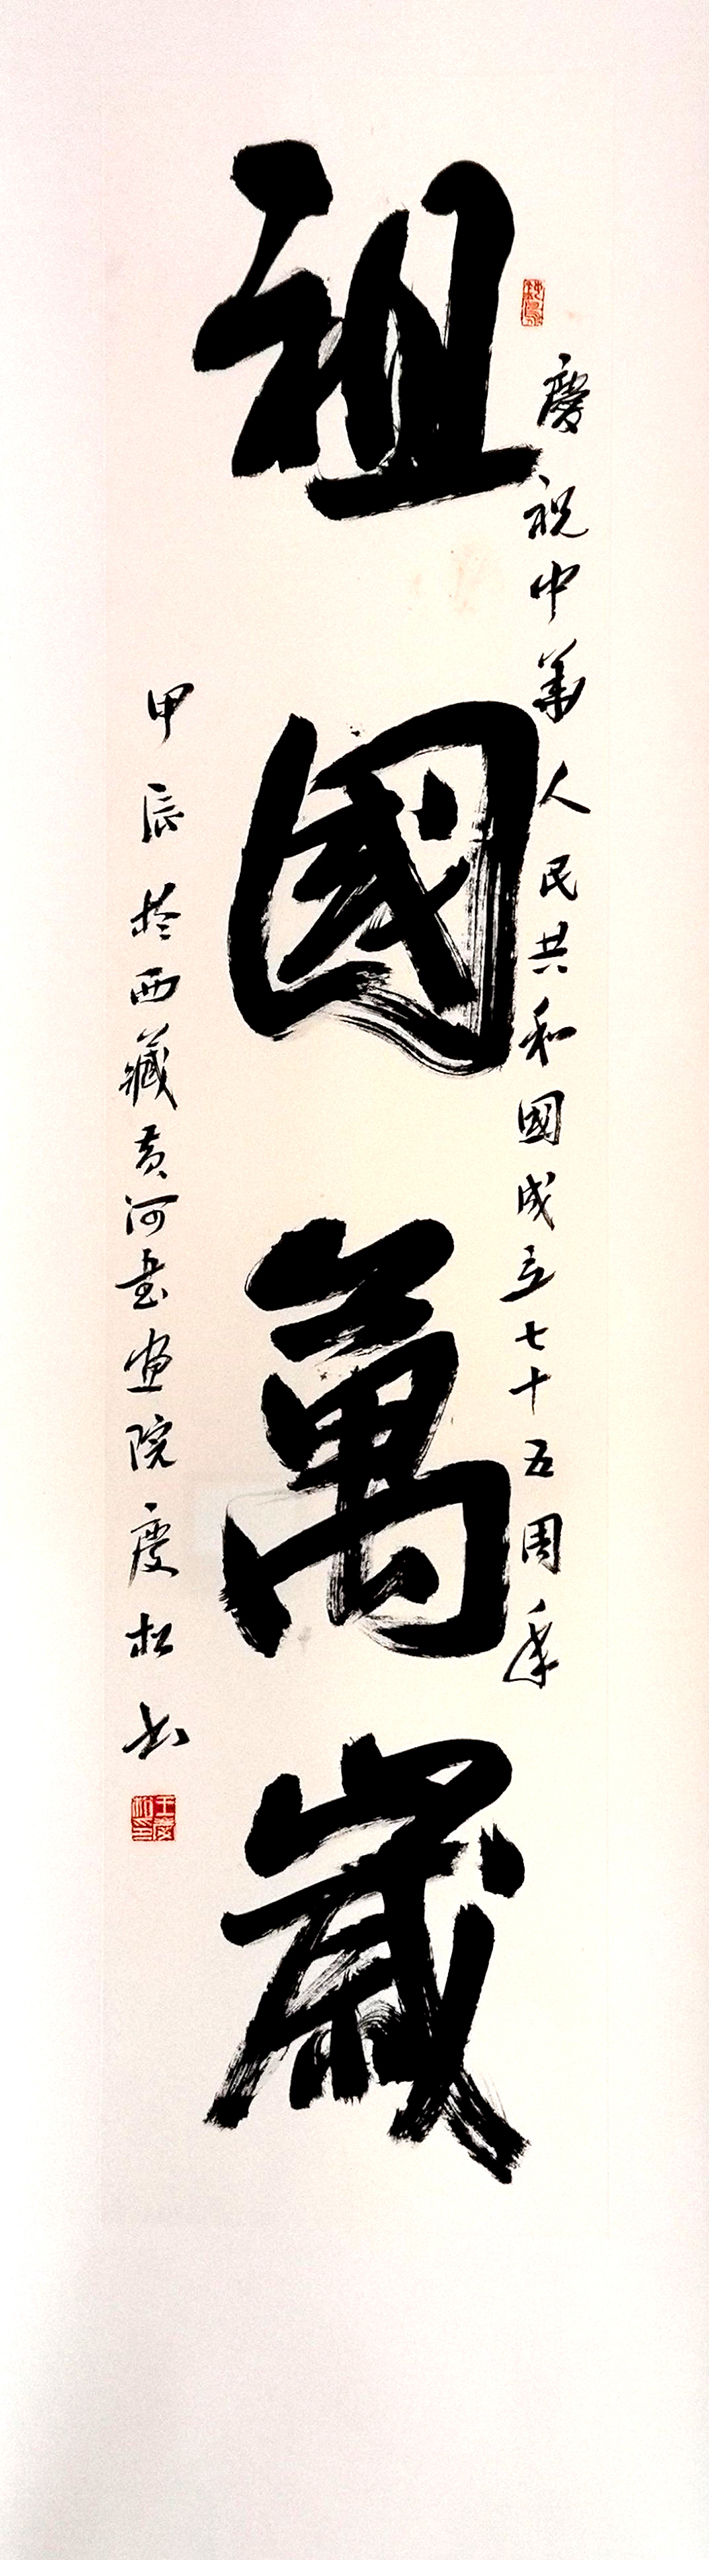 慶祝中華人民共和國成立七十五周年
祖國萬歲
甲辰於西藏黄河書畫院慶松书